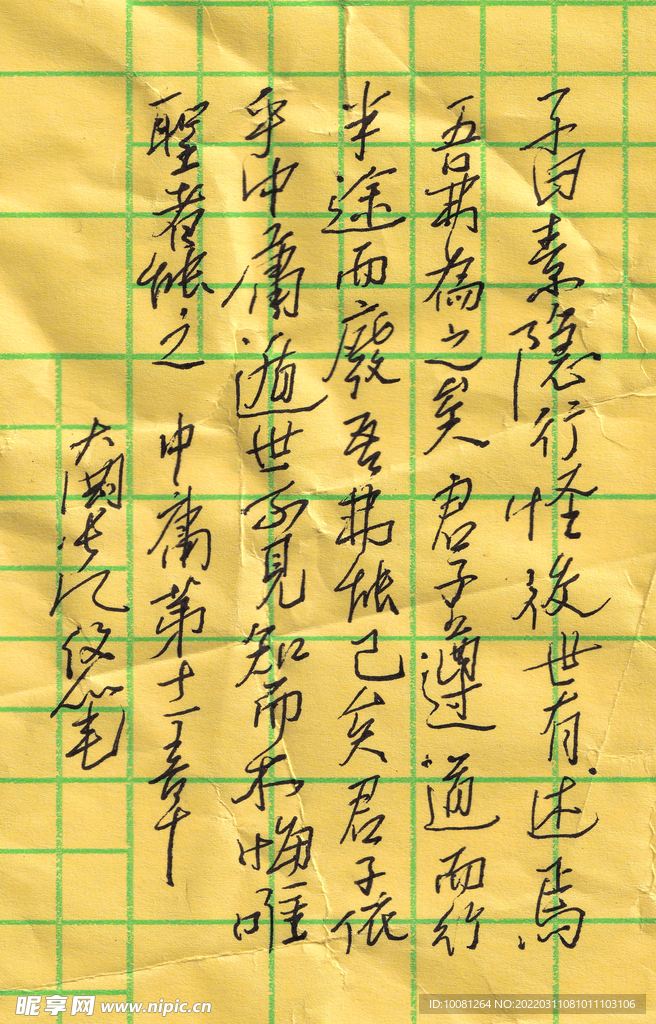 子曰素隱行怪後世有述焉
吾弗為之矣君子遵道而行
半途而廢吾弗能已矣君子依
乎中庸遁世不見知而不悔唯
聖者能之 中庸第十一章
大閑
笔
昵享网 www.nipic.cn
ID:10081264 NO:20220311081011103106